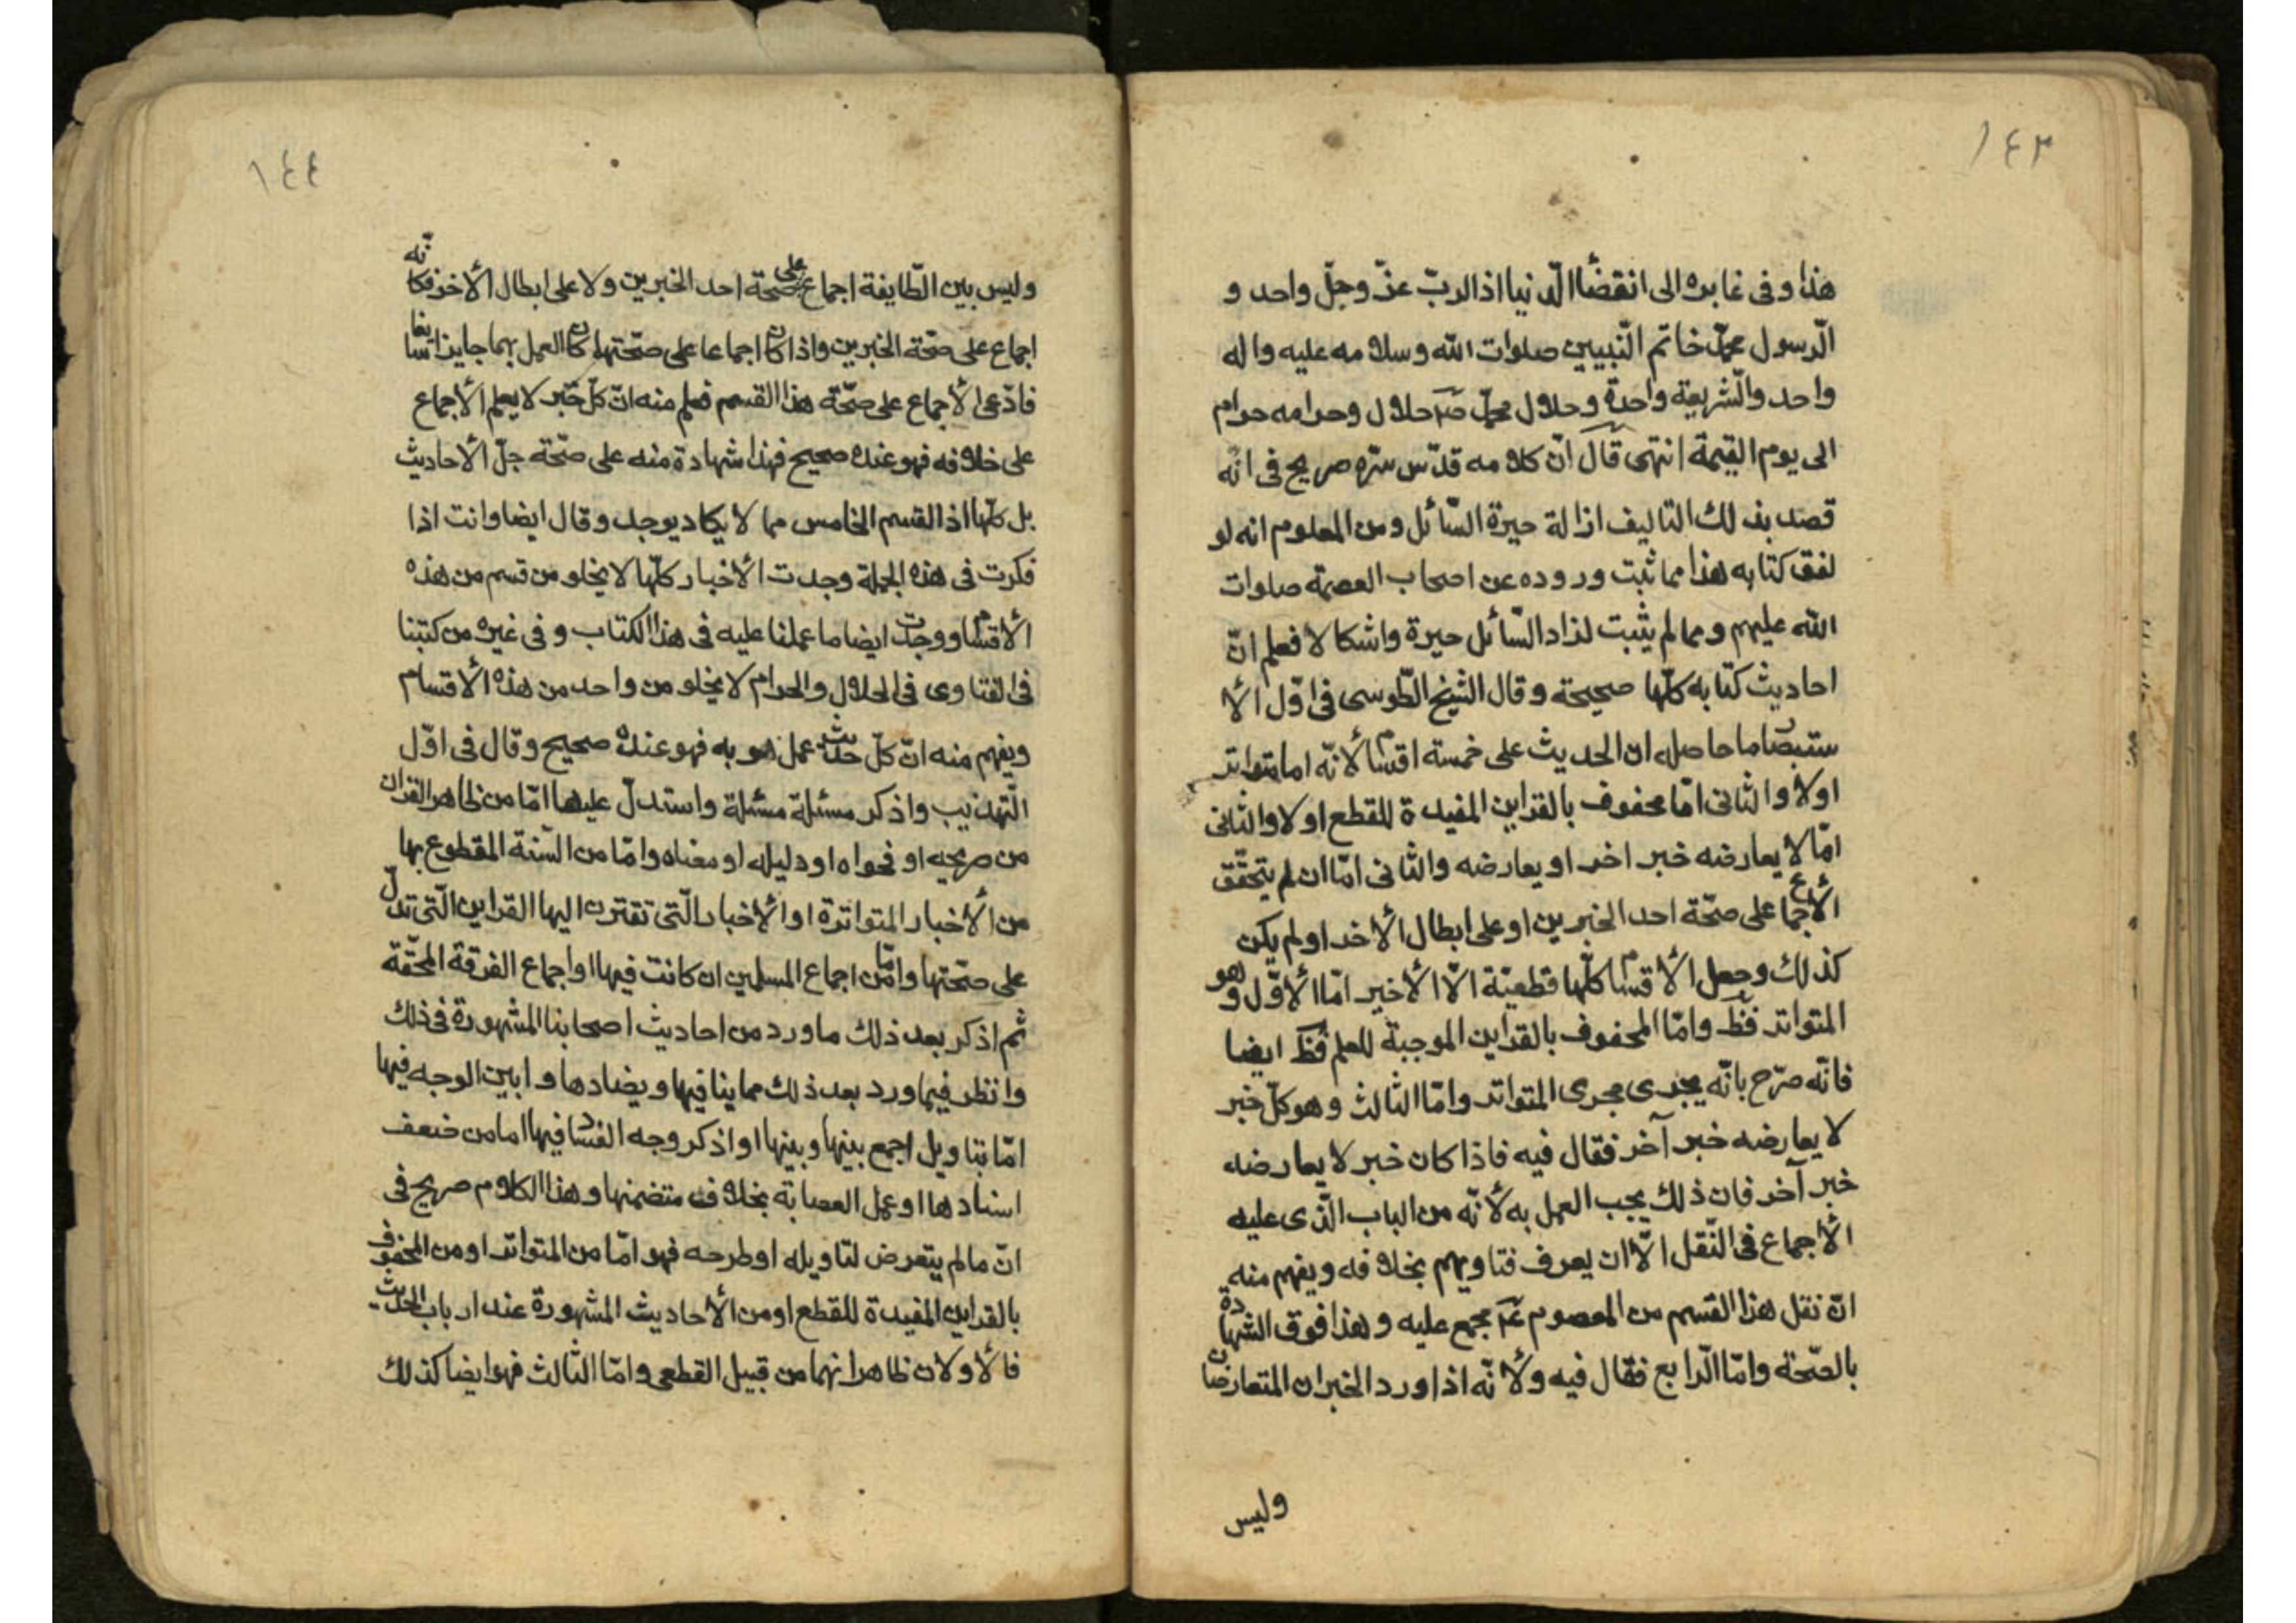 ١٤٣
هذا وفى غابره الى انقضاء الدّنيا اذ الربّ عزّ وجلّ واحد و
الرّسول محمّد خاتم النّبيين صلوات الله وسلامه عليه واله
واحد والشّريعة واحدة وحلال محمّد صلم حلال وحرامه حرام
الى يوم القيمة انتهى قال انّ كلامه قدّس سرّه صريح فى انّه
قصد بذلك التاليف ازالة حيرة السّائل ومن المعلوم انه لو
لفق كتابه هذا مما ثبت وروده عن اصحاب العصمة صلوات
الله عليهم ومما لم يثبت لزاد السّائل حيرة واشكالا فعلم انّ
احاديث كتابه كلّها صحيحة وقال الشّيخ الطّوسى فى اوّل الأ
ستبصار ما حاصله ان الحديث على خمسة اقسام لأنّه اما متواتر
اولا والثانى امّا محفوف بالقراين المفيدة للقطع اولا والثانى
امّا لا يعارضه خبر اخر او يعارضه والثانى امّا ان لم يتحقّق
الأجماع على صحّة احد الخبرين او على ابطال الأخر او لم يكن
كذلك وجعل الأقسام كلّها قطعيّة الّا الأخير امّا الأوّل وهو
المتواتر فظ وامّا المحفوف بالقراين الموجبة للعلم فظ ايضا
فانّه صرّح بانّه يجرى مجرى المتواتر وامّا الثالث وهو كلّ خبر
لا يعارضه خبر آخر فقال فيه فاذا كان خبر لا يعارضه
خبر آخر فان ذلك يجب العمل به لأنّه من الباب الّذى عليه
الأجماع فى النّقل الّا ان يعرف فتاويهم بخلافه ويفهم منه
انّ نقل هذا القسم من المعصوم عم مجمع عليه وهذا فوق الشهادة
بالصّحة وامّا الرّابع فقال فيه ولأنّه اذا ورد الخبران المتعارضان
وليس
١٤٤
وليس بين الطّايفة اجماع على صحّة احد الخبرين ولا على ابطال الأخر فكانّه
اجماع على صحّة الخبرين واذا كان اجماعا على صحّتهما كان العمل بهما جايزا سايغا
فادّعى الأجماع على صحّة هذا القسم فعلم منه انّ كلّ خبر لا يعلم الأجماع
على خلافه فهو عنده صحيح فهذا شهادة منه على صحّة جلّ الأحاديث
بل كلّها اذ القسم الخامس مما لا يكاد يوجد وقال ايضا وانت اذا
فكرت فى هذه الجملة وجدت الأخبار كلّها لا يخلو من قسم من هذه
الأقسام ووجدت ايضا ما عملنا عليه فى هذا الكتاب وفى غيره من كتبنا
فى الفتاوى فى الحلال والحرام لا يخلو من واحد من هذه الأقسام
ويفهم منه انّ كلّ حديث عمل هو به فهو عنده صحيح وقال فى اوّل
التّهذيب واذكر مسئلة مسئلة واستدلّ عليها امّا من ظاهر القران
من صريحه او فحواه او دليله او معناه وامّا من السّنة المقطوع بها
من الأخبار المتواترة او الأخبار الّتى تقترن اليها القراين الّتى تدلّ
على صحّتها وامّا من اجماع المسلمين ان كانت فيها او اجماع الفرقة المحّقة
ثم اذكر بعد ذلك ما ورد من احاديث اصحابنا المشهورة فى ذلك
وانظر فيما ورد بعد ذلك مما ينافيها ويضادها وابين الوجه فيها
امّا بتاويل اجمع بينها وبينها او اذكر وجه الفساد فيها اما من ضعف
اسنادها او عمل العصابة بخلاف متضمنها وهذا الكلام صريح فى
انّ ما لم يتعرض لتاويله او طرحه فهو امّا من المتواتر او من المحفوف
بالقراين المفيدة للقطع او من الأحاديث المشهورة عند ارباب الحديث
فالأولان ظاهر انهما من قبيل القطعى وامّا الثالث فهو ايضا كذلك